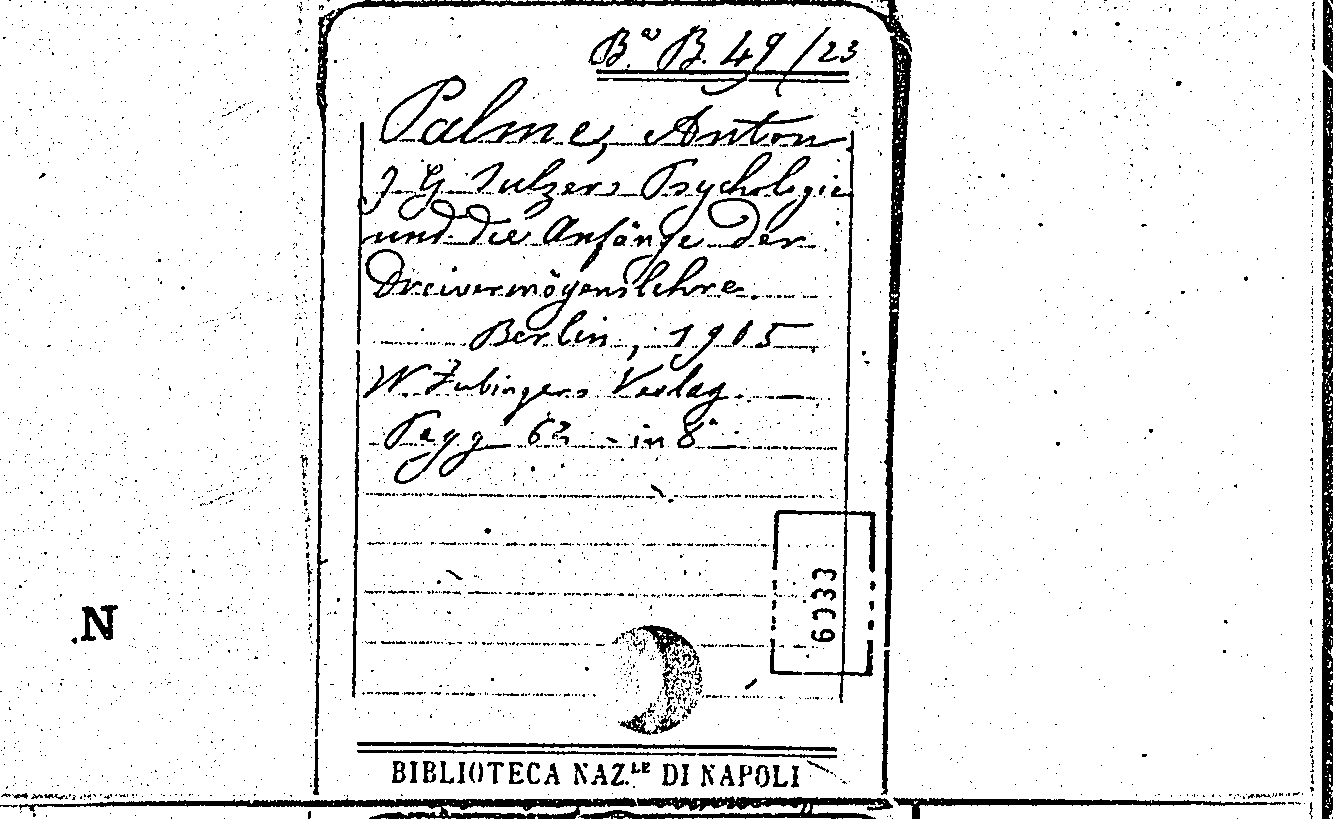 Bª B. 49/23
Palme, Anton.
J G Sulzers Psychologie
und die Anfänge der
Dreivermögenslehre.
Berlin, 1905.
W. Fubingers Verlag.
Pagg 62 - in 8°
6033
N
BIBLIOTECA NAZ.LE DI NAPOLI